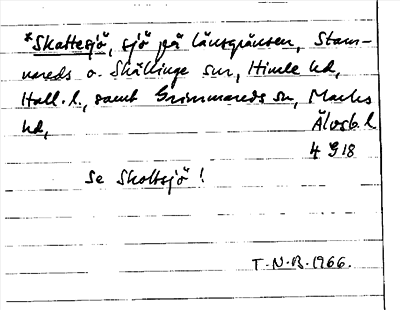 *Skattesjö, sjö på länsgränsen, Stam-
nareds o. Skällinge snr, Himle hd,
Hall. l., samt Grimmareds sn, Marks
hd, Älvsb. l
4 G 18
Se Skottsjö!
T. N. B. 1966.